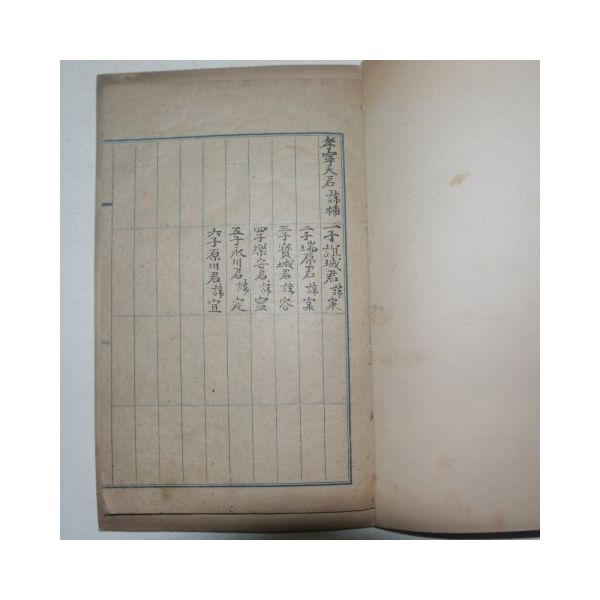 孝寧大君 諱補
一子誼城君 諱寀
二子瑞原君 諱案
三子寶城君 諱容
四子樂安君 諱寍
五子永川君 諱定
六子原川君 諱宜